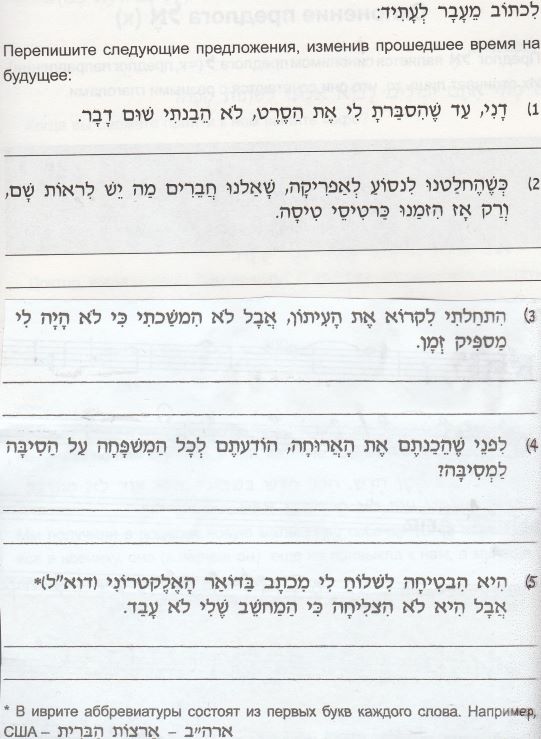 לִכתוֹב מֵעָבָר לְעָתִיד:
Перепишите следующие предложения, изменив прошедшее время на
будущее:
1) דָנִי, עַד שֶהִסבַּרתָ לִי אֶת הַסֶרֶט, לֹא הֵבַנתִי שוּם דָבָר.
2) כְּשֶהֶחלַטנוּ לִנסוֹעַ לְאַפרִיקָה, שָאַלנוּ חֲבֵרִים מַה יֵש לִראוֹת שָם,
וְרַק אָז הִזמַנוּ כַּרטִיסֵי טִיסָה.
3) הִתחַלתִי לִקרוֹא אֶת הָעִיתוֹן, אֲבָל לֹא הִמשַכתִי כִּי לֹא הָיָה לִי
מַספִּיק זְמַן.
4) לִפנֵי שֶהֲכַנתֶם אֶת הָאֲרוּחָה, הוֹדַעתֶם לְכָל הַמִשפָּחָה עַל הַסִיבָּה
לַמְסִיבָּה?
5) הִיא הִבטִיחָה לִשלוֹחַ לִי מִכתָב בַּדוֹאַר הָאֶלֶקטרוֹנִי (דוא"ל)*
אֲבָל הִיא לֹא הִצלִיחָה כִּי הַמַחשֵב שֶלִי לֹא עָבַד.
* В иврите аббревиатуры состоят из первых букв каждого слова. Например,
США – ארה"ב – אַרצוֹת הַבּרִית